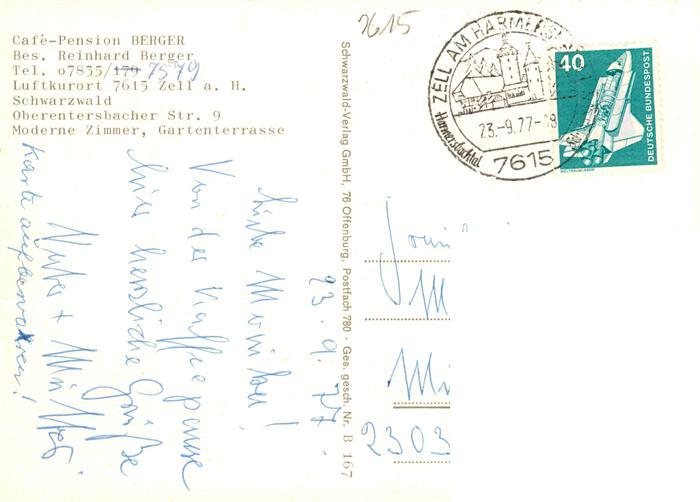 Café-Pension BERGER
Bes. Reinhard Berger
Tel. 07835/179 7579
Luftkurort 7615 Zell a. H.
Schwarzwald
Oberentersbacher Str. 9
Moderne Zimmer, Gartenterrasse
7615
ZELL AM HARMERSBACH
Harmersbachtal
23.-9.77-18
7615
40
DEUTSCHE BUNDESPOST
WELTRAUMLABOR
Schwarzwald-Verlag GmbH, 76 Offenburg, Postfach 780 · Ges. gesch. Nr. B 167
23.9.77
Liebe Monika!
Von der Kaffeepause
hier herzliche Grüße
Vater + Mutter
Karte aufbewahren!
M
Mi
2303